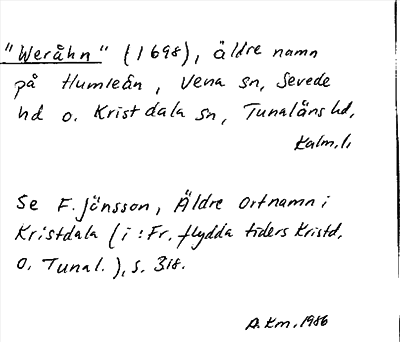 "Weråhn" (1698), äldre namn
på Humleån, Vena sn, Sevede
hd o. Kristdala sn, Tunaläns hd,
Kalm.l,
Se F. Jönsson, Äldre ortnamn i
Kristdala (i: Fr. flydda tiders Kristd.
o. Tunal.), s. 318.
A.Km, 1986